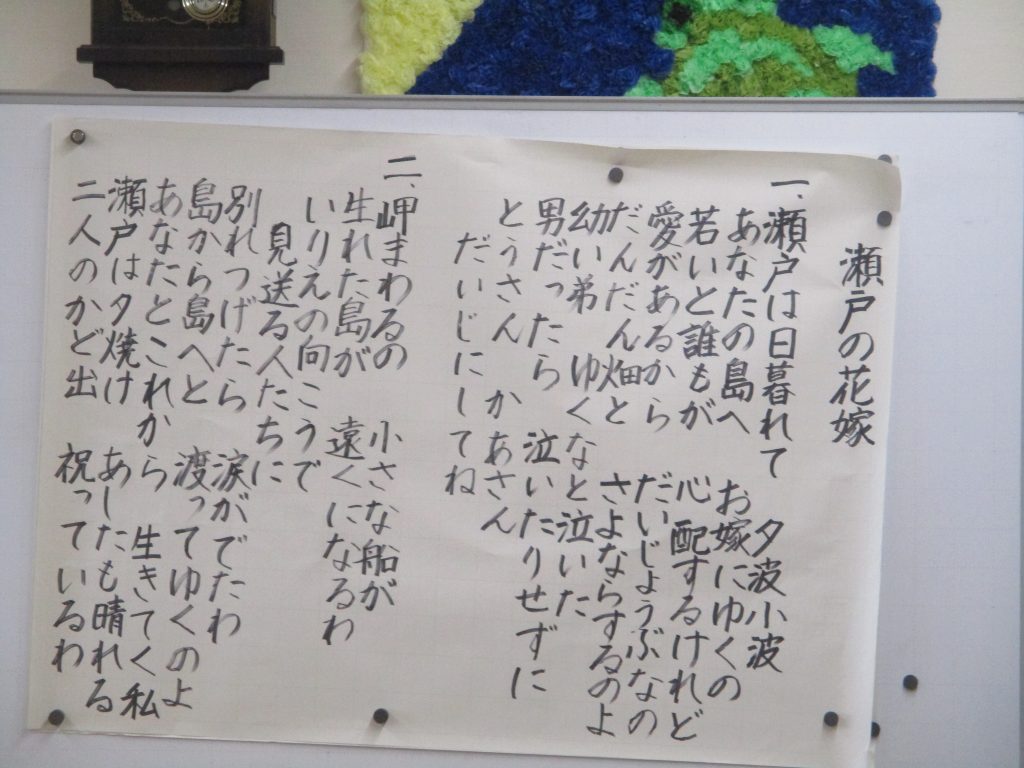 瀬戸の花嫁
一、瀬戸は日暮れて 夕波小波
あなたの島へ お嫁にゆくの
若いと誰もが 心配するけれど
愛があるから だいじょうぶなの
だんだん畑と さよならするのよ
幼い弟 ゆくなと泣いた
男だったら 泣いたりせずに
とうさん かあさん
だいじにしてね
二、岬まわるの 小さな船が
生れた島が 遠くになるわ
いりえの向こうで
見送る人たちに
別れつげたら 涙がでたわ
島から島へと 渡ってゆくのよ
あなたとこれから 生きてく私
瀬戸は夕焼け あしたも晴れる
二人のかど出 祝っているわ